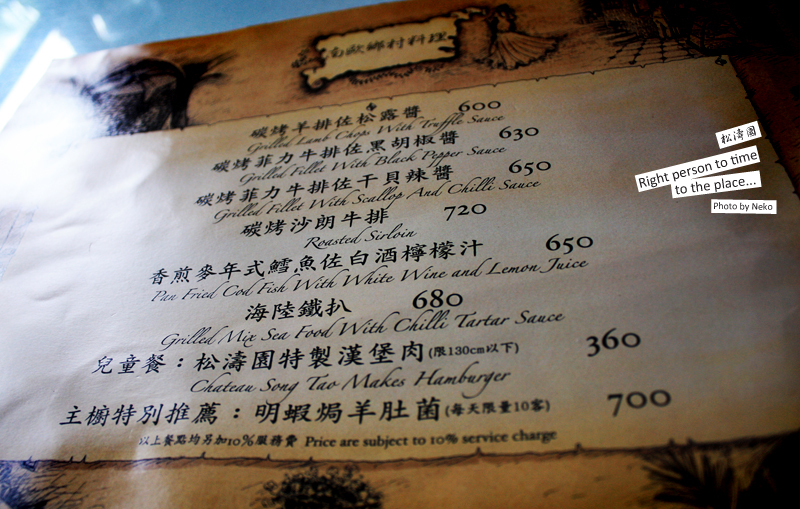 南歐鄉村料理
碳烤羊排佐松露醬 600
Grilled Lamb Chops With Truffle Sauce
碳烤菲力牛排佐黑胡椒醬 630
Grilled Fillet With Black Pepper Sauce
碳烤菲力牛排佐干貝辣醬 650
Grilled Fillet With Scallop And Chilli Sauce
碳烤沙朗牛排 720
Roasted Sirloin
香煎麥年式鱈魚佐白酒檸檬汁 650
Pan Fried Cod Fish With White Wine and Lemon Juice
海陸鐵扒 680
Grilled Mix Sea Food With Chilli Tartar Sauce
兒童餐：松濤園特製漢堡肉(限130cm以下) 360
Chateau Song Tao Makes Hamburger
主櫥特別推薦：明蝦焗羊肚菌(每天限量10客) 700
以上餐點均另加10%服務費 Price are subject to 10% service charge
松濤園
Right person to time
to the place...
Photo by Neko